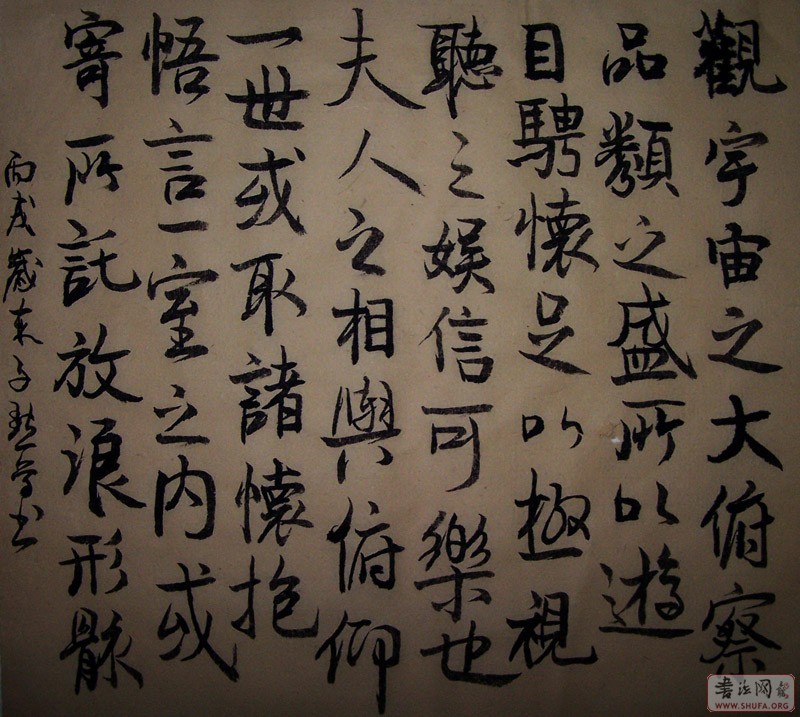 觀宇宙之大俯察
品類之盛所以遊
目騁懷足以極視
聽之娛信可樂也
夫人之相與俯仰
一世或取諸懷抱
悟言一室之内或
寄所託放浪形骸
丙戌歲末子書
書法网
WWW.SHUFA.ORG